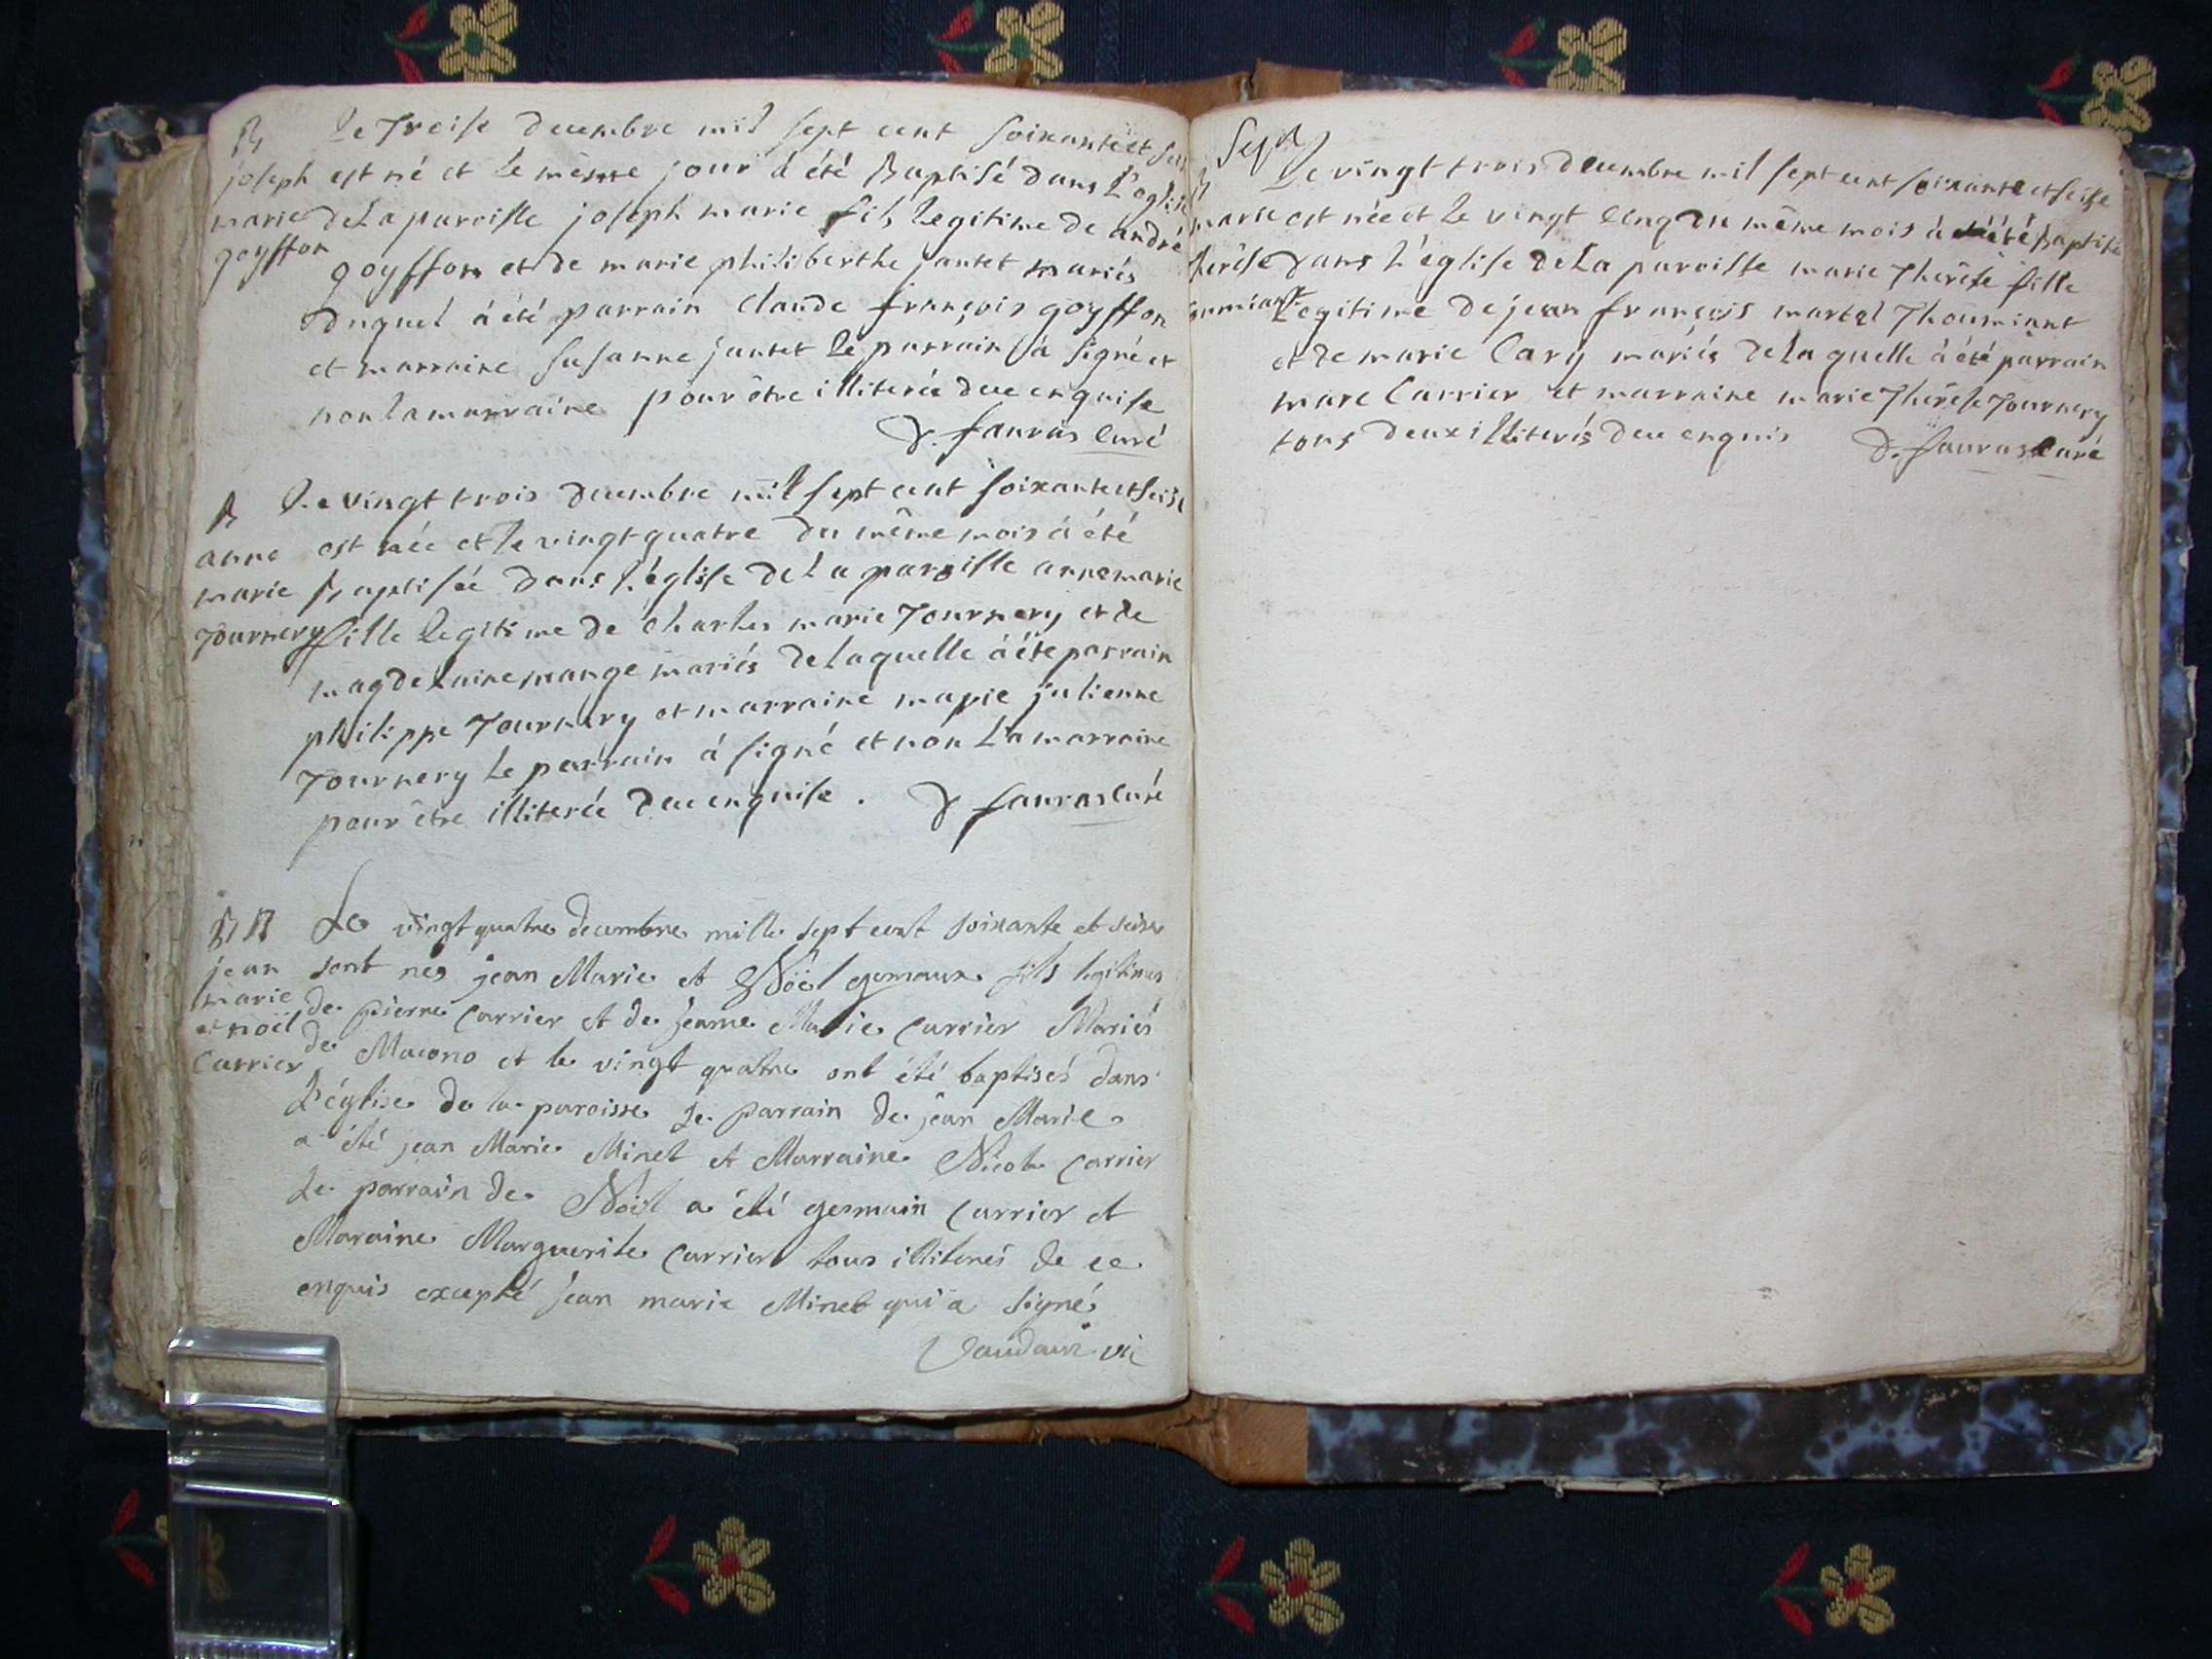 B Le treise decembre mil sept cent soixante et seise
joseph est né et le même jour à été Baptisé dans L'eglise
marie de La paroisse joseph marie fils Legitime de andré
goyffon goyffon et de marie philiberthe jantet mariés
duquel à été parrain claude françois goyffon
et marraine susanne jantet le parrain à signé et
non la marraine pour être illiterée dece enquise
D. fauras curé
B Le vingt trois decembre mil sept cent soixante et seise
anne est née et le vingt quatre du même mois à été
marie Baptisée dans L'église de La paroisse anne marie
Tournery fille Legitime de charles marie Tournery et de
magdelaine mange mariés de laquelle à éte parrain
philippe Tournery et marraine marie julienne
Tournery le parrain à signé et non La marraine
pour être illiterée dece enquise . D fauras curé
B B Le vingt quatre decembre mille sept cent soixante et seise
jean sont nes jean Marie et Nöel gemaux fils legitimes
marie de pierre Carrier et de jeanne Marie Carrier Mariés
et noël de Macono et le vingt quatre ont été baptisés dans
Carrier L'église de la paroisse Le parrain de jean Marie
a été jean Marie Minet et Marraine Nicole Carrier
Le parrain de Noël a été germain Carrier et
Maraine Marguerite Carrier tous illiterés de ce
enquis excepté jean marie Minet qui a signé
Vaudaux vic
Sept
B Le vingt trois decembre mil sept cent soixante et seise
marie est née et le vingt cinq du même mois à été Baptisée
therèse dans L'église de La paroisse marie Therèse fille
Legitime de jean françois martel Thoumiant
et de marie Cary mariés de la quelle à été parrain
marc Carrier et marraine marie Therèse Tournery
tous deux illiterés dece enquis D. fauras curé